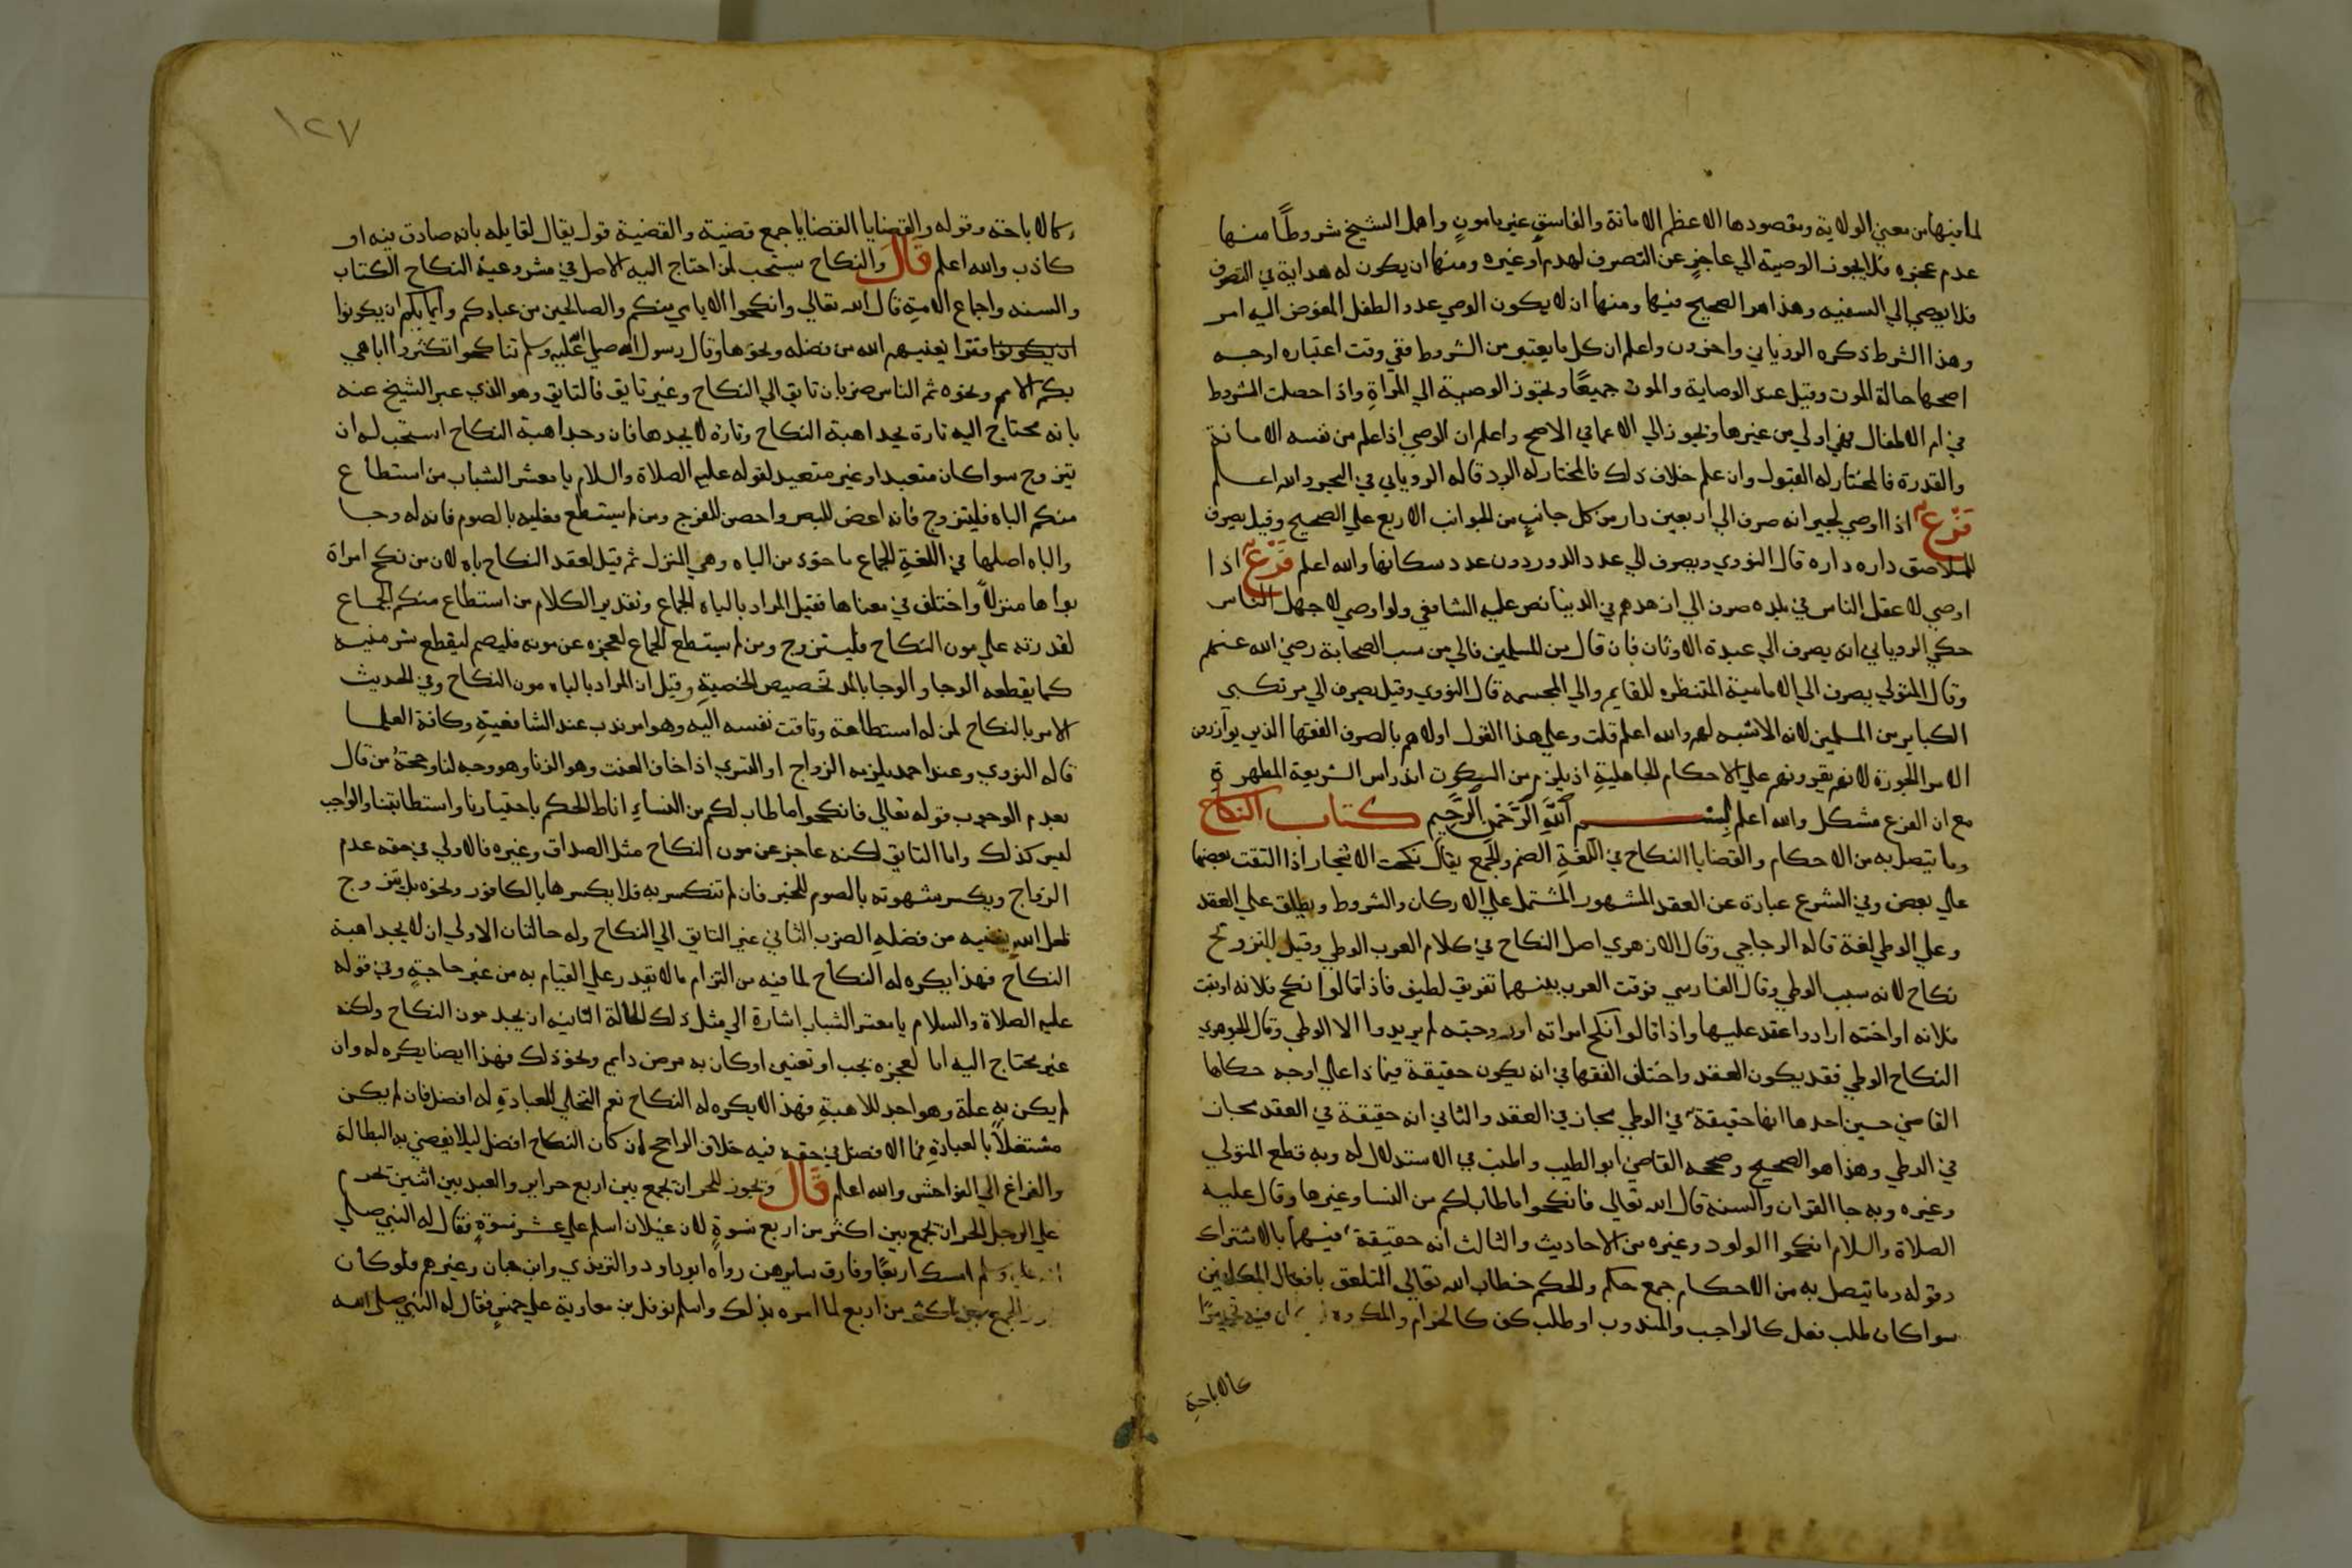 لما فيها من معنى الولاية ومقصودها الاعظم الامانة والفاسق غير مامونٍ واهمل الشيخ شروطًا منها
عدم عجزه فلا يجوز الوصية الي عاجزٍ عن التصرف لهدم اوغيره ومنها ان يكون له هداية في التصرف
فلا يوصي الي السفيه وهذا هو الصحيح فيها ومنها ان لا يكون الوصي عدو الطفل المفوض اليه امر
وهذا الشرط ذكره الروياني واخرون واعلم ان كل ما يعتبر من الشروط ففي وقت اعتباره اوجه
اصحها حالة الموت وقيل عند الوصاية والموت جميعًا وتجوز الوصية الي المراةِ واذا حصلت الشروط
في ام الاطفال فهي اولي من غيرها وتجوز الي الاعما في الاصح واعلم ان الوصي اذا علم من نفسه الامانة
والقدرة فالمختار له القبول وان علم خلاف ذلك فالمختار له الرد قاله الروياني في البحر والله اعلم
فَرْعٌ اذا اوصي لجيرانه صرف الي اربعين دار من كل جانبٍ من الجوانب الاربع علي الصحيح وقيل يصرف
للملاصق داره داره قال النووي ويصرف الي عدد الدور دون عدد سكانها والله اعلم فَرْعٌ اذا
اوصي لاعقل الناس في بلده صرف الي ازهدهم في الدنيا نص عليه الشافعي ولو اوصي لاجهل الناس
حكي الروياني انه يصرف الي عبدة الاوثان فان قال من المسلمين فالي من سب الصحابة رضي الله عنهم
وقال المتولي يصرف الي الامامية المنتظرة للقايم والي المجسمه قال النووي وقيل يصرف الي مرتكبي
الكباير من المسلمين لانه الاشبه لهم والله اعلم قلت وعلي هذا القول اولاهم بالصرف الفقها الذين يوازرون
الامرا الجورة لانهم يقرونهم علي الاحكام الجاهليةِ اذ يلزم من السكوت اندراس الشريعة المطهرة
مع ان الفرع مشكل والله اعلم بسم اللَّهِ الرَّحْمَنِ الرَّحِيمِ كتاب النكاح
وما يتصل به من الاحكام والقضايا النكاح في اللغةِ الضم والجمع يقال نكحت الاشجار اذا التفت بعضها
علي بعض وفي الشرع عبارة عن العقد المشهور المشتمل علي الاركان والشروط ويطلق علي العقد
وعلي الوطي لغة قاله الزجاجي وقال الازهري اصل النكاح في كلام العرب الوطي وقيل للتزوج
نكاح لانه سبب الوطي وقال الفارسي فرقت العرب بينهما تفريق لطيف فاذا قالوا نكح فلانة اوبنت
فلانه اواخته ارادوا عقد عليها واذا قالوا نكح امراته اوزوجته لم يريدوا الا الوطي وقال الجوهري
النكاح الوطي فقد يكون العقد واختلف الفقها في انه يكون حقيقة فيماذا علي اوجه حكاها
القاضي حسين احدها انها حقيقة في الوطي مجاز في العقد والثاني انه حقيقة في العقد مجاز
في الوطي وهذا هو الصحيح وصححه القاضي ابو الطيب واطنب في الاستدلال له وبه قطع المتولي
وغيره وبه جا القران والسنة قال الله تعالي فانكحوا ماطاب لكم من النسا وغيرها وقال عليه
الصلاة والسلام انكحوا الولود وغيره من الاحاديث والثالث انه حقيقة فيهما بالاشتراك
وقوله وما يتصل به من الاحكام جمع حكم والحكم خطاب الله تعالي المتعلق بافعال المكلفين
سوا كان طلب فعل كالواجب والمندوب او طلب كف كالحرام والمكروه
كالاباحةِ
١٢٧
كالاباحة وقوله والقضايا القضايا جمع قضية والقضية قول يقال لقايله بانه صادق فيه او
كاذب والله اعلم قَالَ والنكاح يستحب لمن احتاج اليه الاصل في مشروعية النكاح الكتاب
والسنه واجماع الامةِ قال الله تعالي وانكحوا الايامي منكم والصالحين من عبادكم وامايكم ان يكونوا
ان يكونوا فقرا يغنيهم الله من فضله ونحوها وقال رسول الله صلي الله عليه وسلم تناكحوا تكثروا اباهي
بكم الامم ونحوه ثم الناس ضربان تايق الي النكاح وغير تايق فالتايق وهو الذي عبر الشيخ عنه
بانه محتاج اليه تارة يجد اهبة النكاح وتارة لا يجدها فان وجد اهبة النكاح استحب له ان
يتزوج سوا كان متعبدا او غير متعبد لقوله عليه الصلاة والسلام يا معشر الشباب من استطاع
منكم الباه فليتزوج فانه اغض للبصر واحصن للفرج ومن لم يستطع فعليه بالصوم فانه له وجا
والباه اصلها في اللغةِ الجماع ماخوذ من الباه وهي المنزل ثم قيل لعقد النكاح باه لان من نكح امراة
بواها منزلاً واختلف في معناها فقيل المراد بالباه الجماع وتقدير الكلام من استطاع منكم الجماع
لقدرته علي مون النكاح فليتزوج ومن لم يستطع الجماع لعجزه عن مونه فليصم ليقطع شر منيه
كما يقطعه الوجا والوجا بالمد تخصيص الخصيةِ وقيل ان المراد بالباه مون النكاح وفي الحديث
الامر بالنكاح لمن له استطاعة وتاقت نفسه اليه وهو امر ندب عند الشافعيةِ وكافة العلما
قاله النووي وعند احمد يلزمه الزواج او التسري اذا خاف العنت وهو الزنا وهو وجه لنا وحجة من قال
بعدم الوجوب قوله تعالي فانكحوا ما طاب لكم من النساءِ اناط الحكم باختيارنا واستطابتنا والواجب
ليس كذلك واما التايق لكنه عاجز عن مون النكاح مثل الصداق وغيره فالاولي في حقه عدم
الزواج ويكسر شهوته بالصوم للخبر فان لم تنكسر به فلا يكسرها بالكافور ونحوه بل يتزوج
لعل الله يغنيه من فضلهِ الضرب الثاني غير التايق الي النكاح وله حالتان الاولي ان لا يجد اهبة
النكاح فهذا يكره له النكاح لما فيه من التزام ما لا يقدر علي القيام به من غير حاجةٍ وفي قوله
عليه الصلاة والسلام يا معشر الشباب اشارة الي مثل ذلك الحالة الثانيه ان يجد مون النكاح ولكنه
غير محتاج اليه اما لعجزه بجب او تعنين اوكان به مرض دايم ونحو ذلك فهذا ايضا يكره له وان
لم يكن بهِ علة وهو واجد للاهبةِ فهذا لا يكره له النكاح نعم التخلي للعبادةِ له افضل فان لم يكن
مشتغلاً بالعبادةِ فما الافضل في حقه فيه خلاف الراجح ان كان النكاح افضل ليلا يفضي به البطالة
والفراغ الي الفواحش والله اعلم قَالَ ويجوز للحر ان يجمع بين اربع حراير والعبد بين اثنين يحرم
علي الرجل الحر ان يجمع بين اكثر من اربع نسوةٍ لان غيلان اسلم علي عشر نسوةٍ فقال له النبي صلي
الله عليه وسلم امسك اربعًا وفارق سايرهن رواه ابوداود والترمذي وابن حبان وغيرهم فلوكان
الجمع بين اكثر من اربع لما امره بذلك واسلم نوفل بن معاوية علي خمسٍ فقال له النبي صلي الله